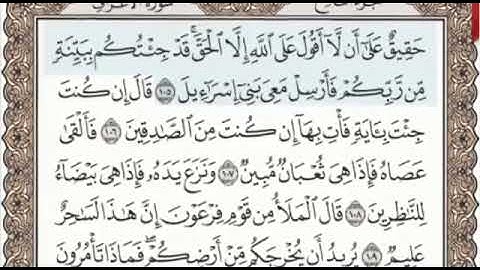 سورة الأعراف
حَقِيقٌ عَلَىٰٓ أَن لَّآ أَقُولَ عَلَى ٱللَّهِ إِلَّا ٱلْحَقَّ ۚ قَدْ جِئْتُكُم بِبَيِّنَةٍ
مِّن رَّبِّكُمْ فَأَرْسِلْ مَعِىَ بَنِىٓ إِسْرَٰٓءِيلَ ١٠٥ قَالَ إِن كُنتَ
جِئْتَ بِـَٔايَةٍ فَأْتِ بِهَآ إِن كُنتَ مِنَ ٱلصَّٰدِقِينَ ١٠٦ فَأَلْقَىٰ
عَصَاهُ فَإِذَا هِىَ ثُعْبَانٌ مُّبِينٌ ١٠٧ وَنَزَعَ يَدَهُۥ فَإِذَا هِىَ بَيْضَآءُ
لِلنَّٰظِرِينَ ١٠٨ قَالَ ٱلْمَلَأُ مِن قَوْمِ فِرْعَوْنَ إِنَّ هَٰذَا لَسَٰحِرٌ
عَلِيمٌ ١٠٩ يُرِيدُ أَن يُخْرِجَكُم مِّنْ أَرْضِكُمْ ۖ فَمَاذَا تَأْمُرُونَ